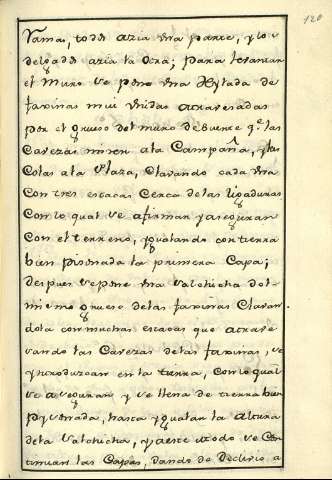 120
Ramas, todas azia una parte, y lo
delgado azia la otra; para levantar
el Muro se pone una Hylada de
faxinas mui unidas atravesadas
por el grueso del muro de suerte qe. las
Cavezas miren ala Campaña, y las
Colas ala Plaza, Clavando cada una
Con tres estacas Cerca delas ligaduras
Con lo qual se afirman y aseguran
Con el terreno, ygualando con tierra
bien pisonada la primera Capa;
despues se pone una Salchicha del
mismo grueso delas faxinas Clavan-
dola con muchas estacas que atrave
sando las Cavezas delas faxinas, se
yntroduzcan en la tierra, Con lo qual
se aseguran y se llena de tierra bien
pysonada, hasta ygualar la altura
dela Salchicha, y a este modo se Con
tinuan las Capas, dando de Declivio a